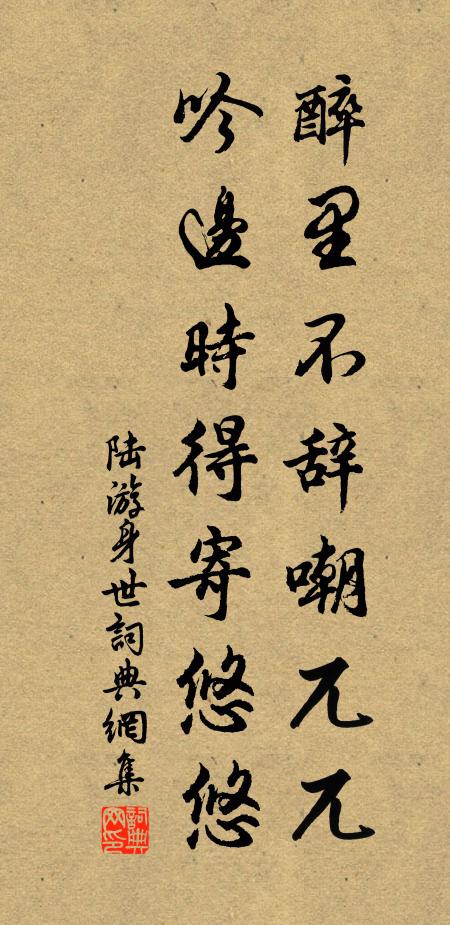 醉里不辞嘲兀兀
吟邊時得寄悠悠
陆游身世詞典網集
詞典網印